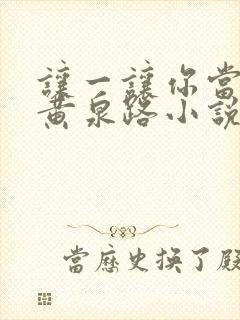 讓一讓你當
黃泉路小說
當歷史換了殿